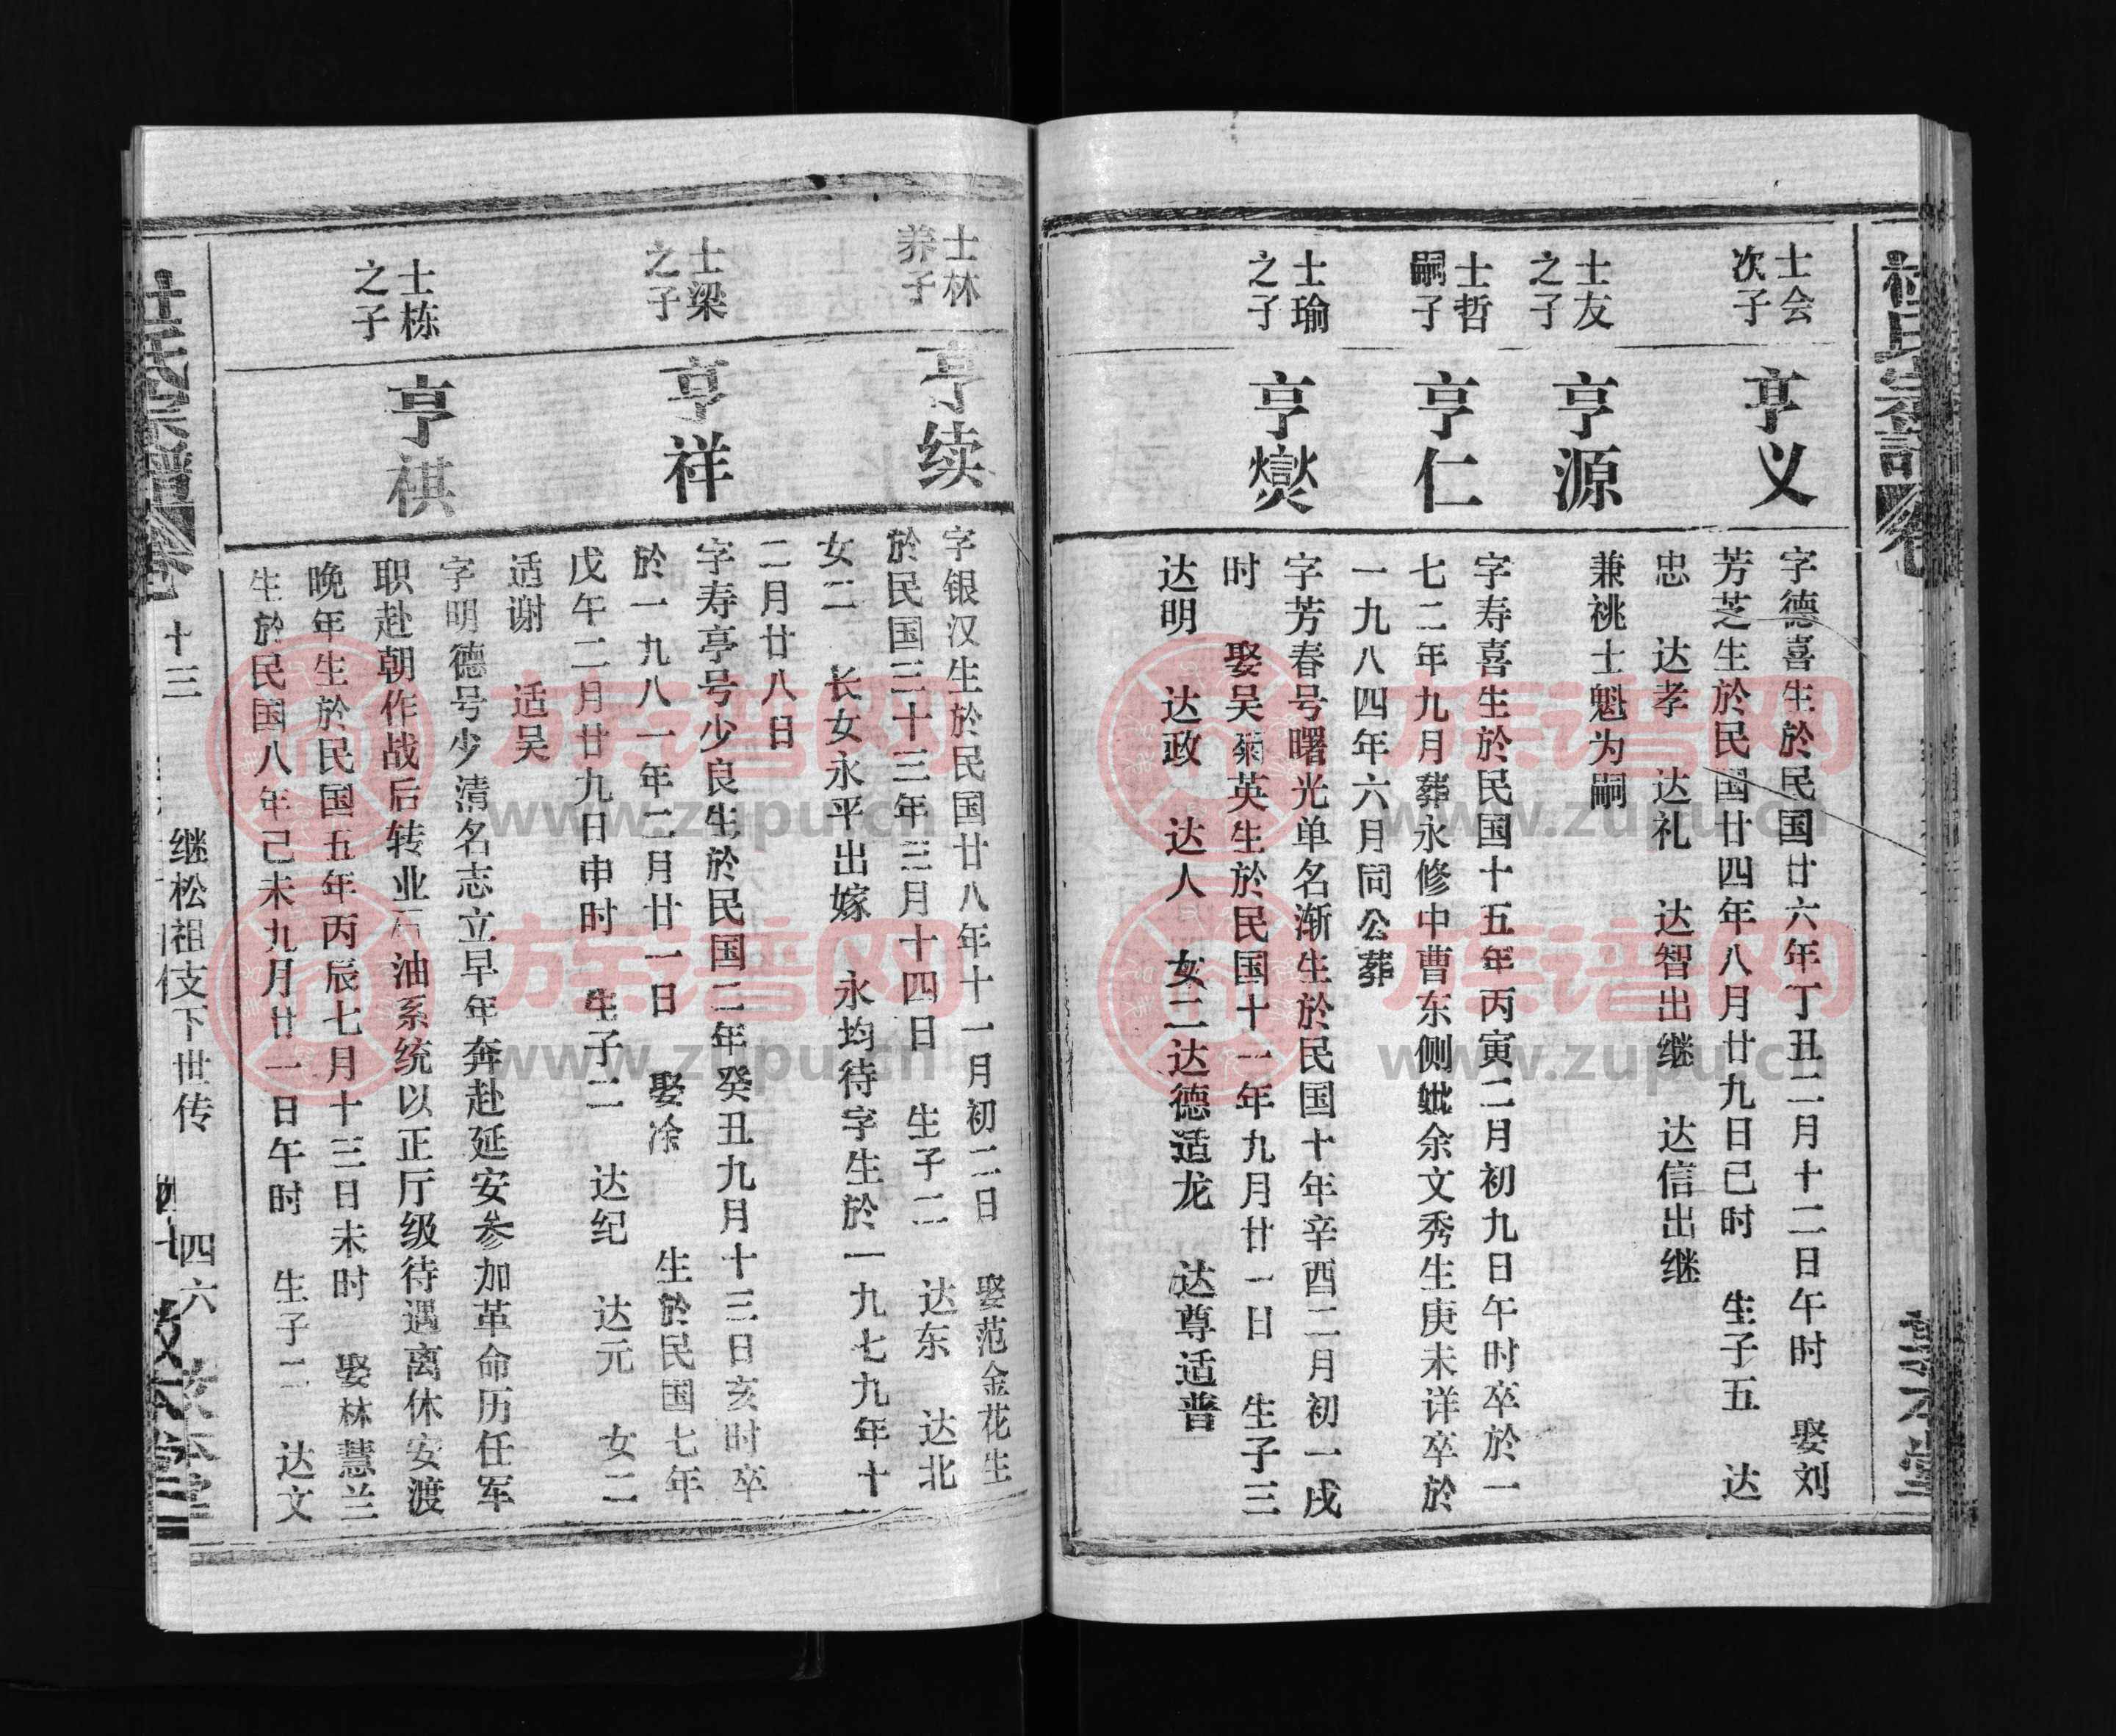 士会
次子
亨义
字德喜生於民国廿六年丁丑二月十二日午时 娶刘
芳芝生於民国廿四年八月廿九日巳时 生子五 达
忠 达孝 达礼 达智出继 达信出继
士友
之子
亨源
兼祧士魁为嗣
士哲
嗣子
亨仁
字寿喜生於民国十五年丙寅二月初九日午时卒於一
七二年九月葬永修中曹东侧妣余文秀生庚未详卒於
一九八四年六月同公葬
士瑜
之子
亨爕
字芳春号曙光单名渐生於民国十年辛酉二月初一戌
时 娶吴菊英生於民国十一年九月廿一日 生子三
达明 达政 达人 女二达德适龙 达尊适普
士林
养子
亨续
字银汉生於民国廿八年十一月初二日 娶范金花生
於民国三十三年三月十四日 生子二 达东 达北
女二 长女永平出嫁 永均待字生於一九七九年十
二月廿八日
士梁
之子
亨祥
字寿亭号少良生於民国二年癸丑九月十三日亥时卒
於一九八一年二月廿一日 娶凃 生於民国七年
戊午二月廿九日申时 生子二 达纪 达元 女二
适谢 适吴
士栋
之子
亨祺
字明德号少清名志立早年奔赴延安参加革命历任军
职赴朝作战后转业石油系统以正厅级待遇离休安渡
晚年生於民国五年丙辰七月十三日未时 娶林慧兰
生於民国八年己未九月廿一日午时 生子二 达文
杜氏宗谱 卷 十三 继松祖支下世传 四六
族谱网
www.zupu.cn
族谱网
www.zupu.cn
族谱网
www.zupu.cn
族谱网
www.zupu.cn